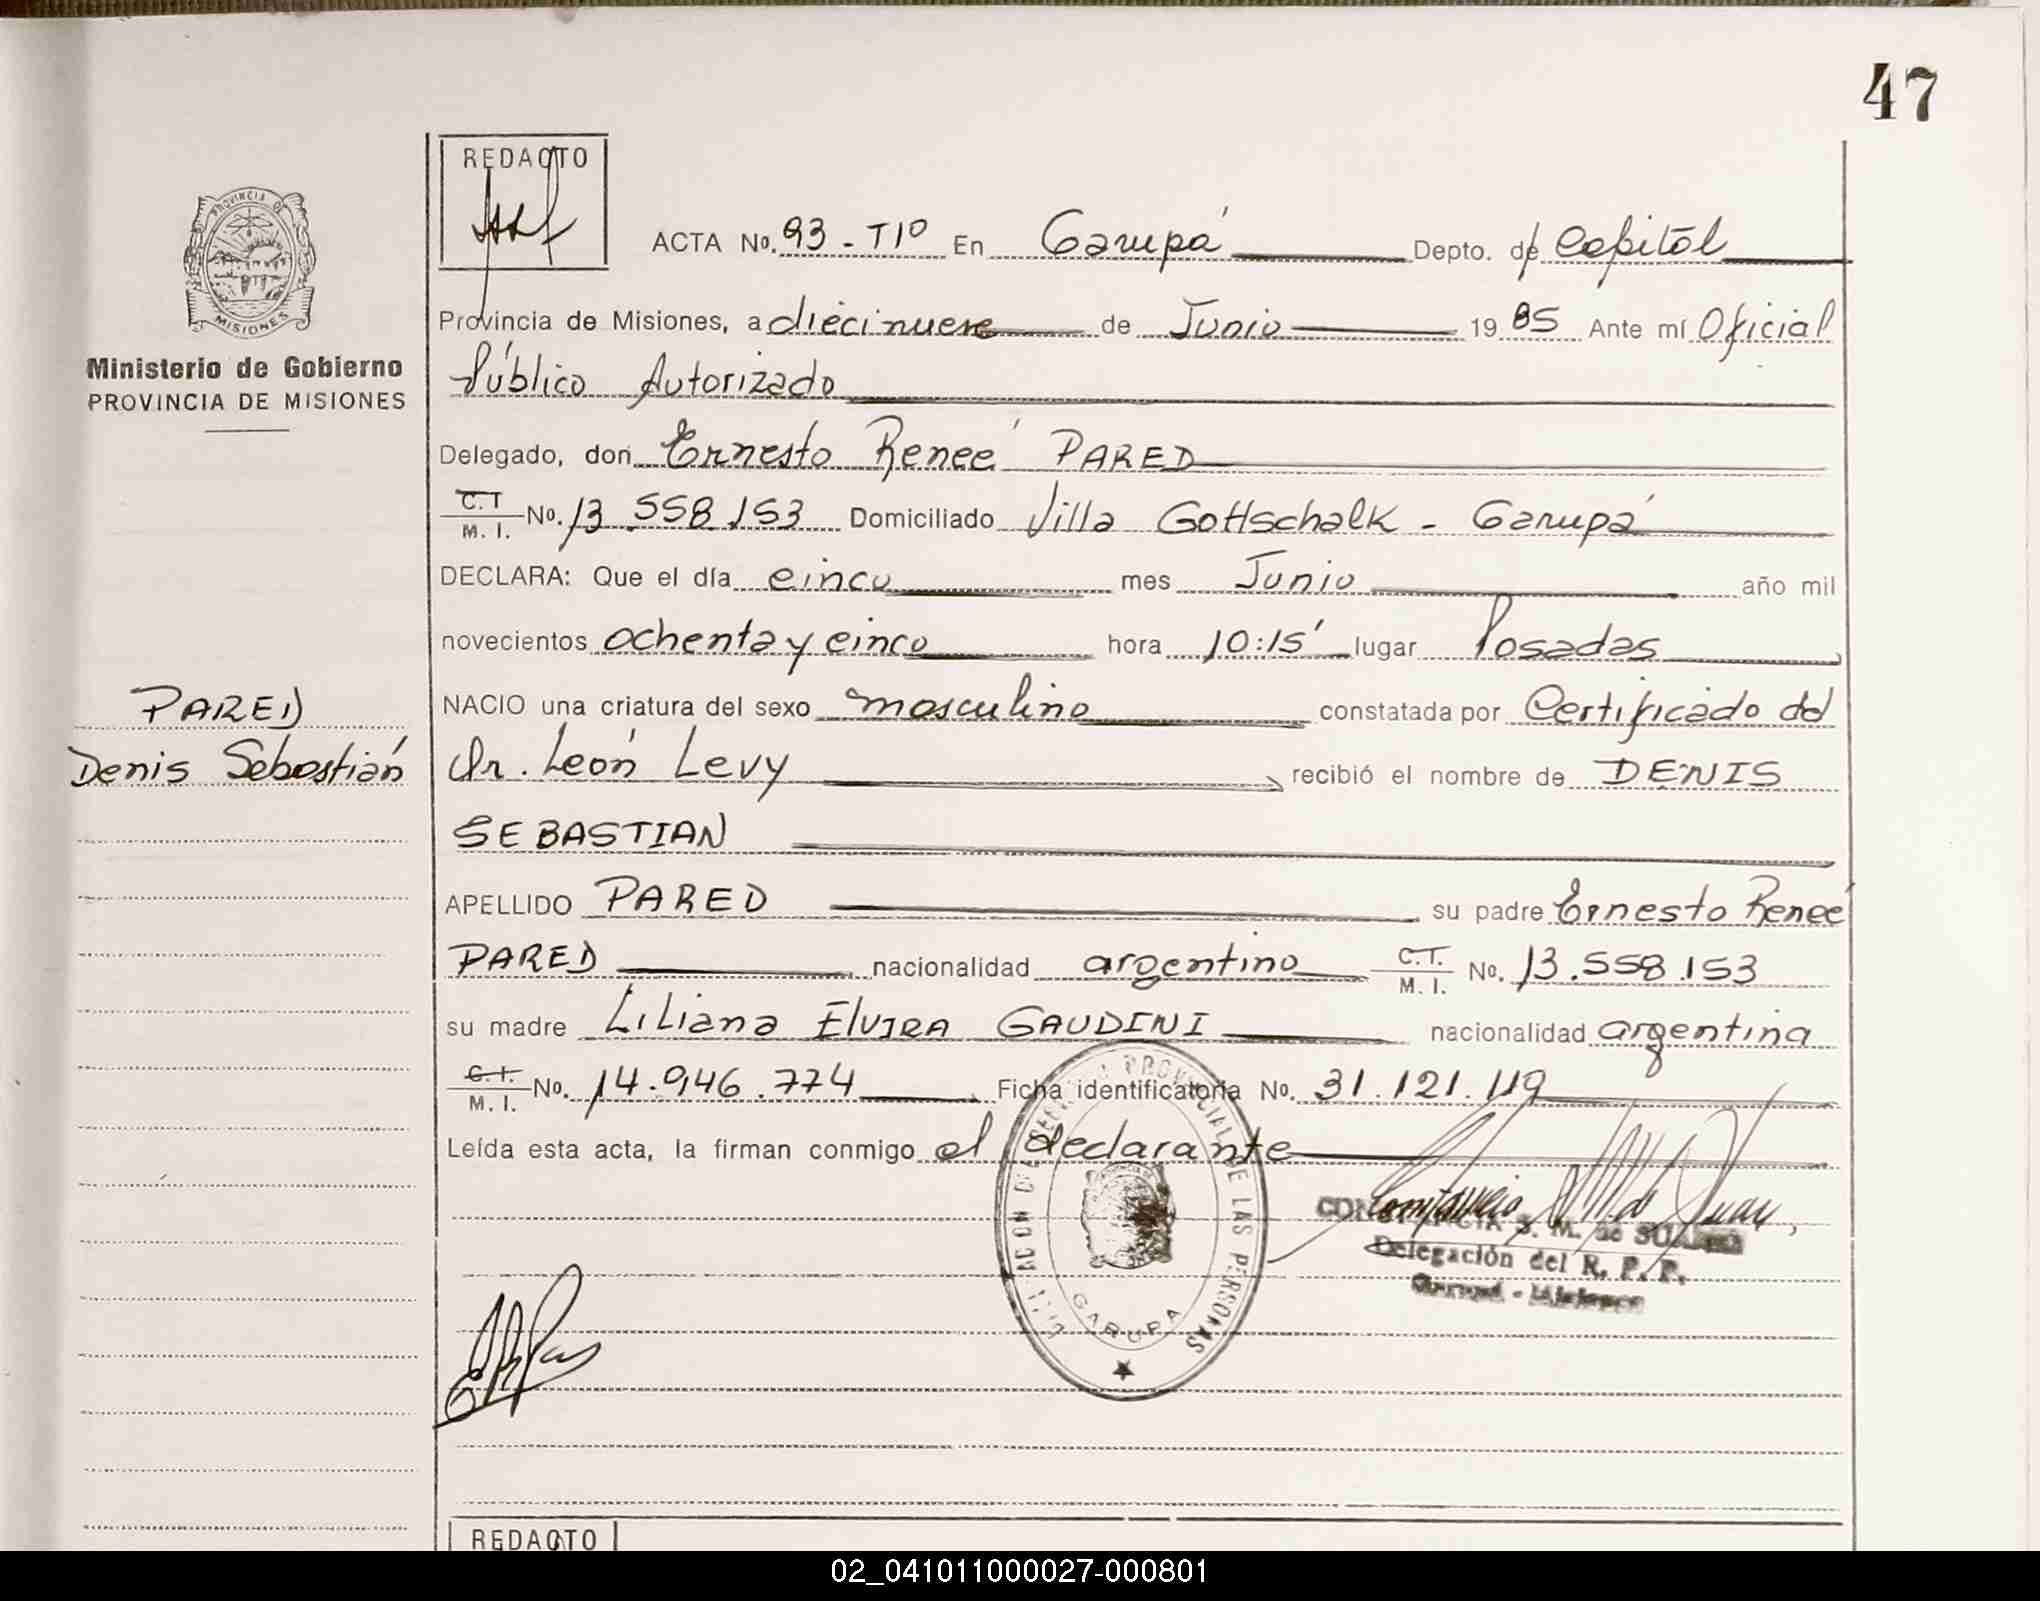 47
REDACTO
ACTA No. 93 - T1º En Garupá Depto. de Capital
Provincia de Misiones, a diecinueve de Junio 1985 Ante mí Oficial
Público Autorizado
Delegado, don Ernesto Reneé PARED
C.I. M. I. No. 13.558.153 Domiciliado Villa Gottschalk - Garupá
DECLARA: Que el día cinco mes Junio año mil
novecientos ochenta y cinco hora 10:15' lugar Posadas
NACIO una criatura del sexo masculino constatada por Certificado del
Dr. León Levy recibió el nombre de DENIS
SEBASTIAN
APELLIDO PARED su padre Ernesto Reneé
PARED nacionalidad argentino C.I. M. I. No. 13.558.153
su madre Liliana Elvira GAUDINI nacionalidad argentina
C.I. M. I. No. 14.946.774 Ficha identificatoria No. 31.121.119
Leída esta acta, la firman conmigo el declarante
PROVINCIA DE MISIONES
Ministerio de Gobierno
PROVINCIA DE MISIONES
PARED
Denis Sebastián
PROVINCIAL DE LAS PERSONAS
GARUPA
S. M. de
Delegación del R. P. P.
Garupá - Misiones
REDACTO
02_041011000027-000801